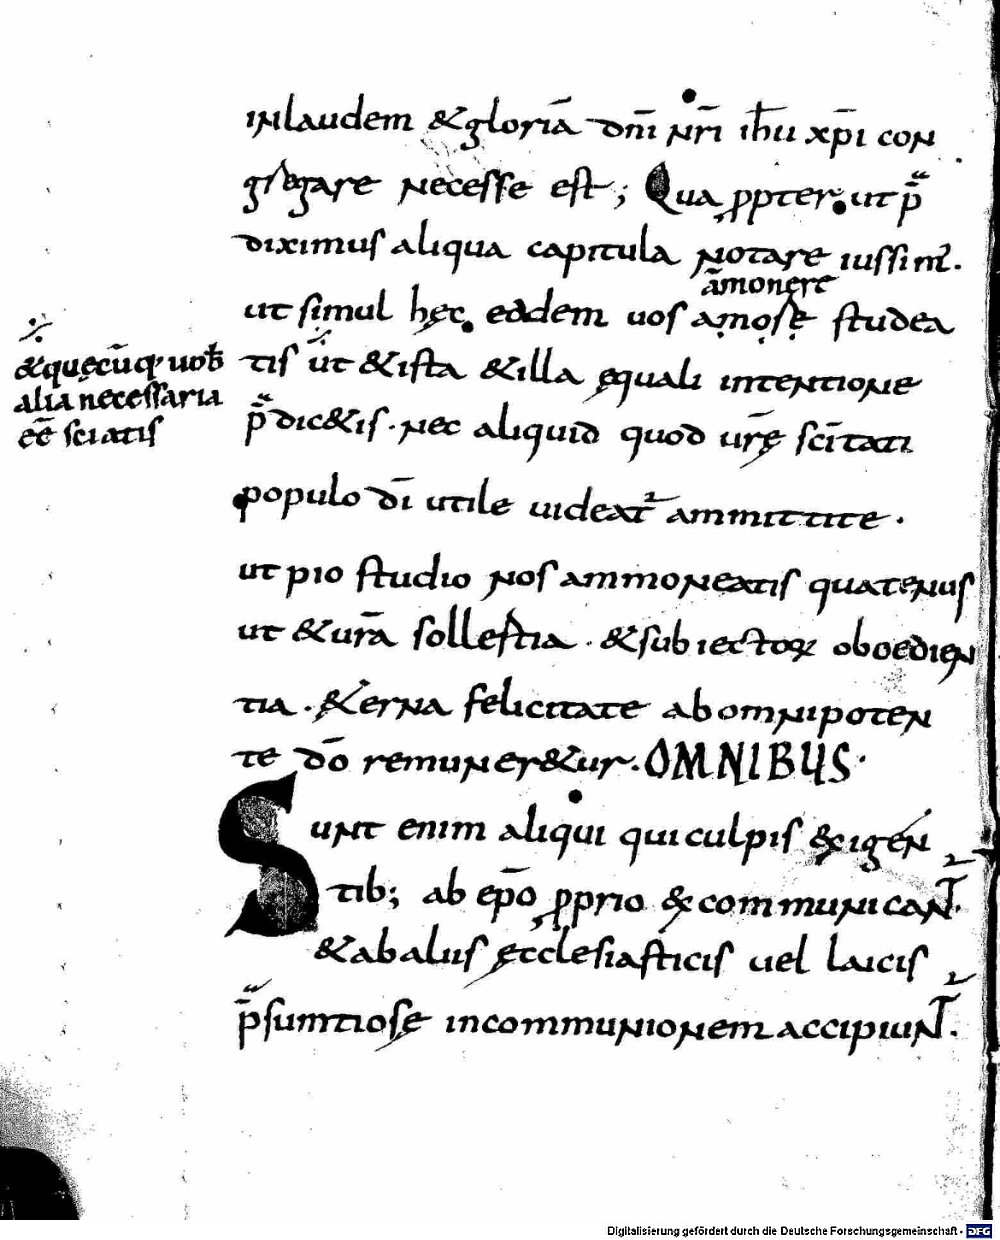 inlaudem &gloriā dn̄i nr̄i ihū xp̄i con
gregare necesse est; Qua ꝓpter ut p̄
diximus aliqua capitula notare iussim̄.
āmonere
ut simul hęc eadem uos amose studea
tis ut &ista &illa ęquali intentione
p̄dic&is. nec aliquid quod urę̄ sc̄itati
populo dī utile uideat᷑ ammittite.
ut pio studio nos ammoneatis quatenus
ut &urā sollestia. &subiectoꝝ oboedien
tia. &erna felicitate ab omnipoten
te dō remuner&ur. OMNIBUS.
Sunt enim aliqui qui culpis exigen
tib; ab ep̄o ꝓprio excommunicant᷑.
&abaliis ęcclesiasticis uel laicis
p̄sumtiose incommunionem accipiunt᷑.
&quęcūq; uob̄
alia necessaria
eē sciatis
Digitalisierung gefördert durch die Deutsche Forschungsgemeinschaft - DFG